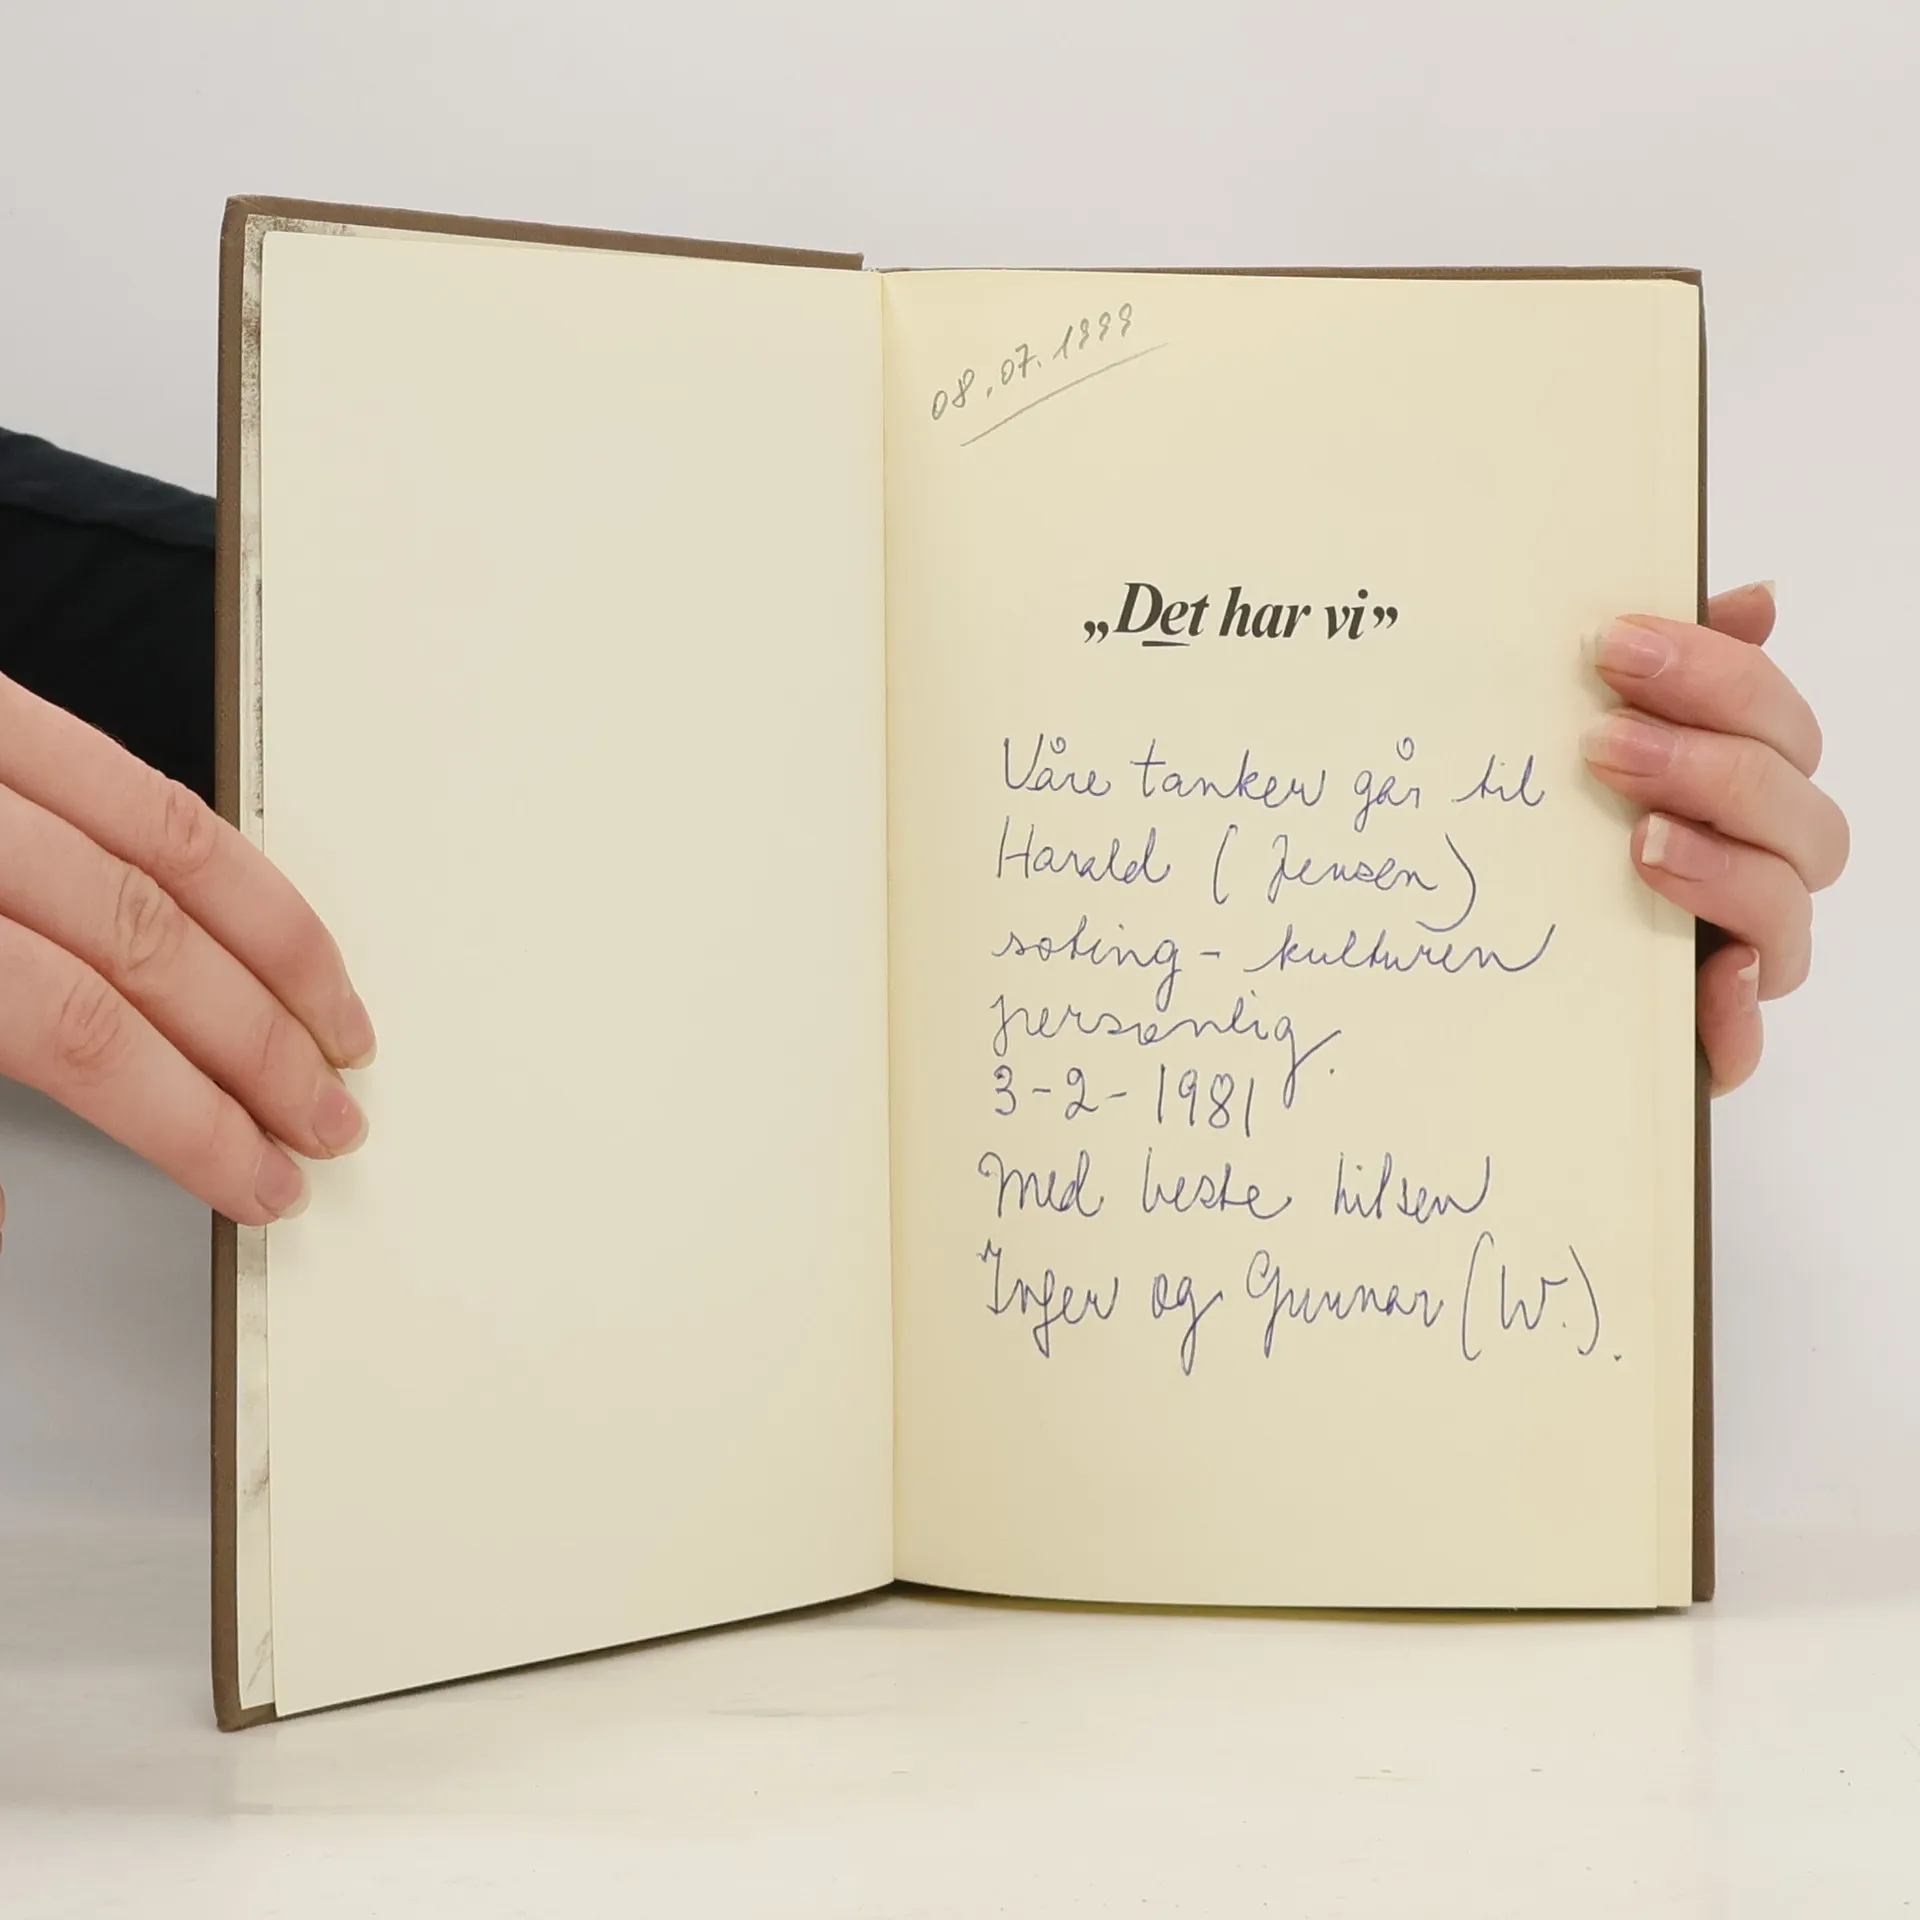 08.07.1999
„Det har vi”
Våre tanker går til
Harald (Jensen)
søting - kulturen
personlig.
3-2-1981
Med beste hilsen
Inger og Gunnar (W.).